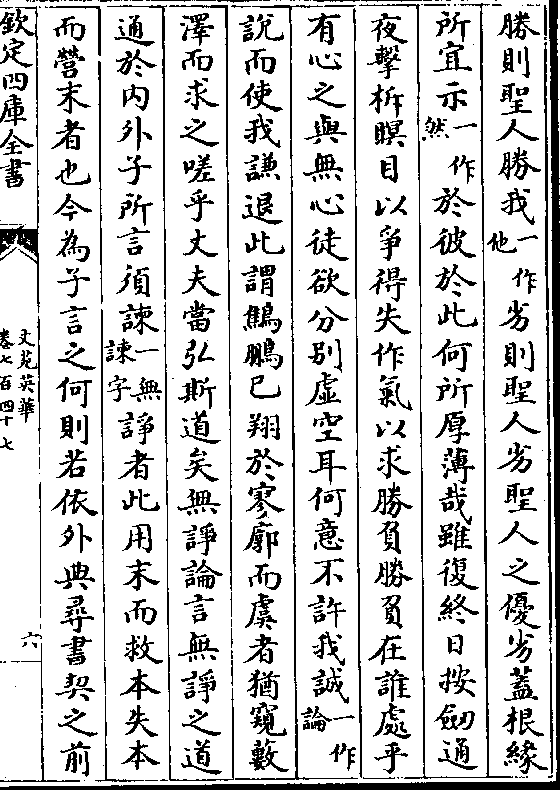 勝則聖人勝我一作他劣則聖人劣聖人之優劣蓋根緣
所宜示一作然於彼於此何所厚薄哉雖復終日按劒通
夜擊柝瞑目以爭得失作氣以求勝負勝負在誰處乎
有心之與無心徒欲分別虛空耳何意不許我誠一作論
說而使我謙退此謂鷦鵬已翔於寥廓而虞者猶窺藪
澤而求之嗟乎丈夫當弘斯道矣無諍論言無諍之道
通於內外子所言須諫一無諫字諍者此用末而救本失本
而營末者也今為子言之何則若依外典尋書契之前
欽定四庫全書
文苑英華
卷七百四十七
六